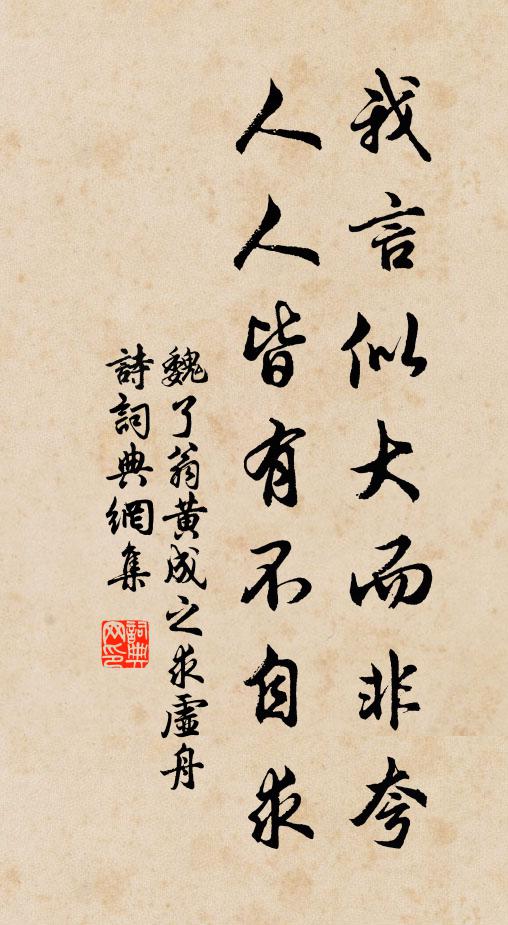 我言似大而非夸
人人皆有不自求
魏了翁黄成之求虛舟
詩詞典網集
詞典
网印